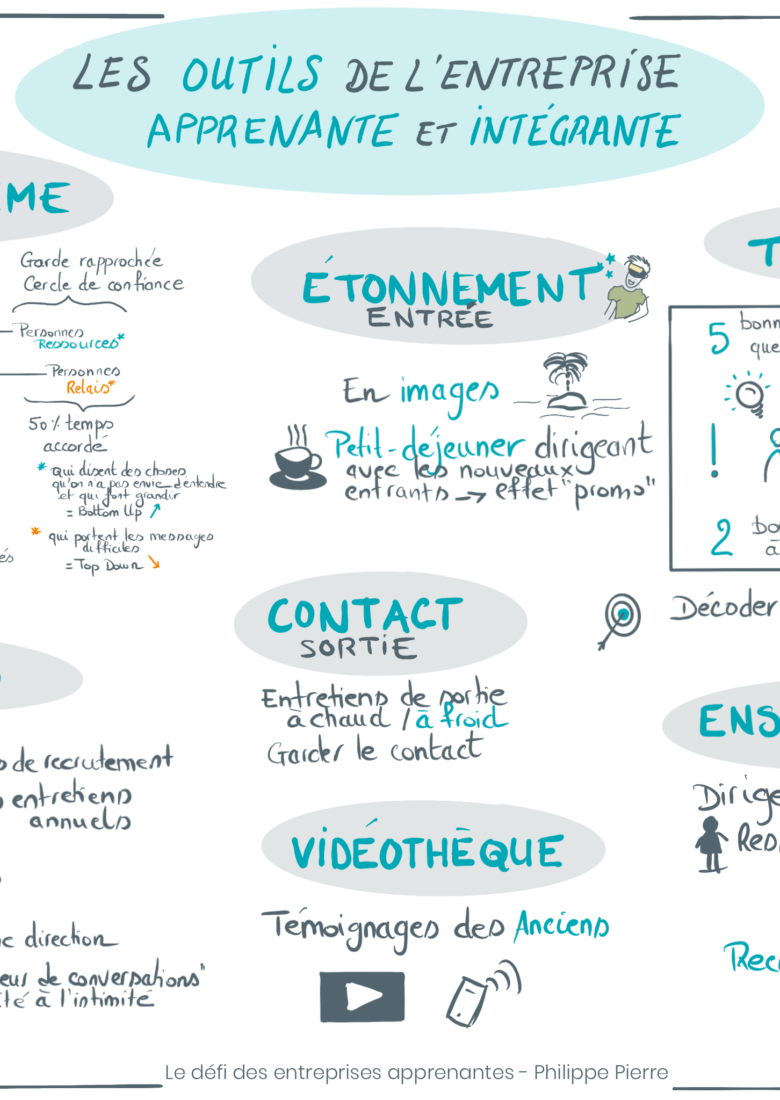 LES OUTILS DE L'ENTREPRISE
APPRENANTE ET INTÉGRANTE
Garde rapprochée
Cercle de confiance
Personnes
Ressources*
Personnes
Relais*
50% temps
accordé
* qui disent des choses
qu'on n'a pas envie d'entendre
et qui font grandir
= Bottom Up ↗
* qui portent les messages
difficiles
= Top Down ↘
de recrutement
entretiens
annuels
direction
de conversations"
à l'intimité
ÉTONNEMENT
ENTRÉE
En images
Petit-déjeuner dirigeant
avec les nouveaux
entrants → effet "promo"
CONTACT
SORTIE
Entretiens de sortie
à chaud / à froid
Garder le contact
VIDÉOTHÈQUE
Témoignages des Anciens
5
!
2
Décoder
Le défi des entreprises apprenantes - Philippe Pierre